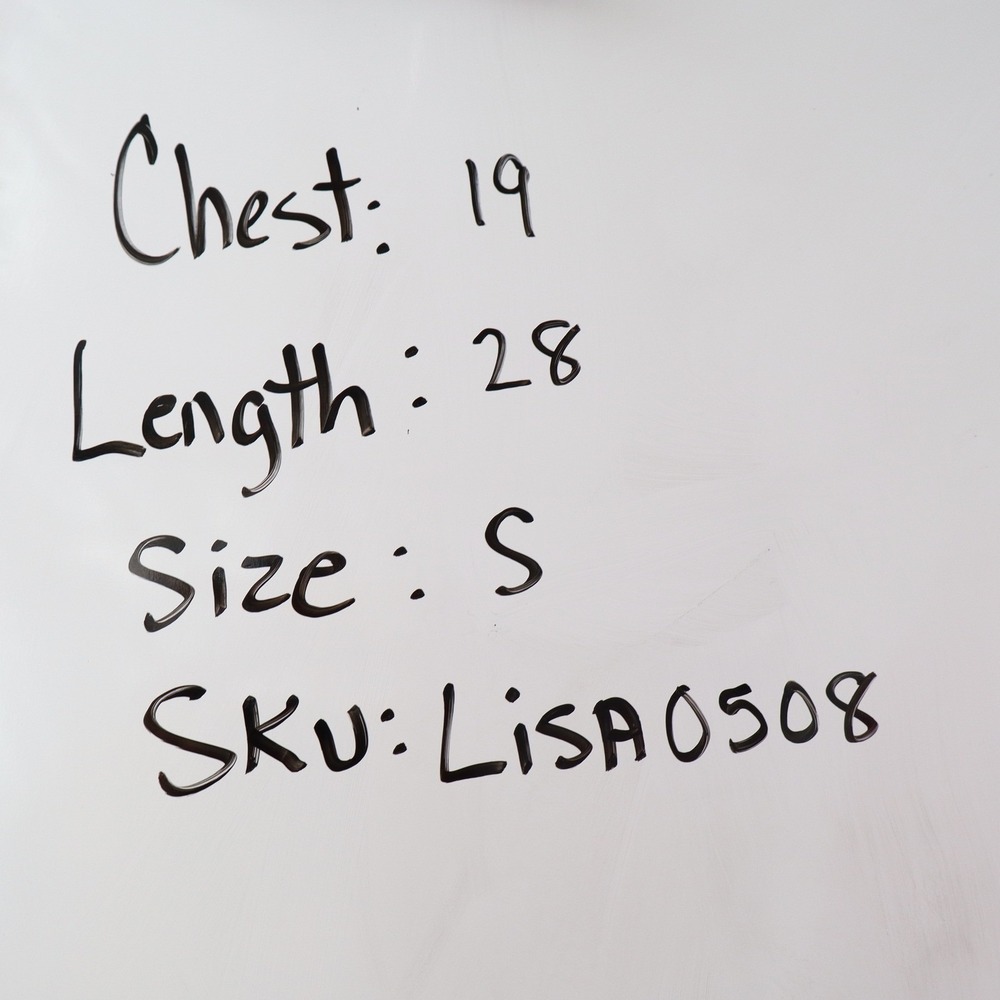 Chest: 19
Length: 28
Size: S
SKU: LiSA0508